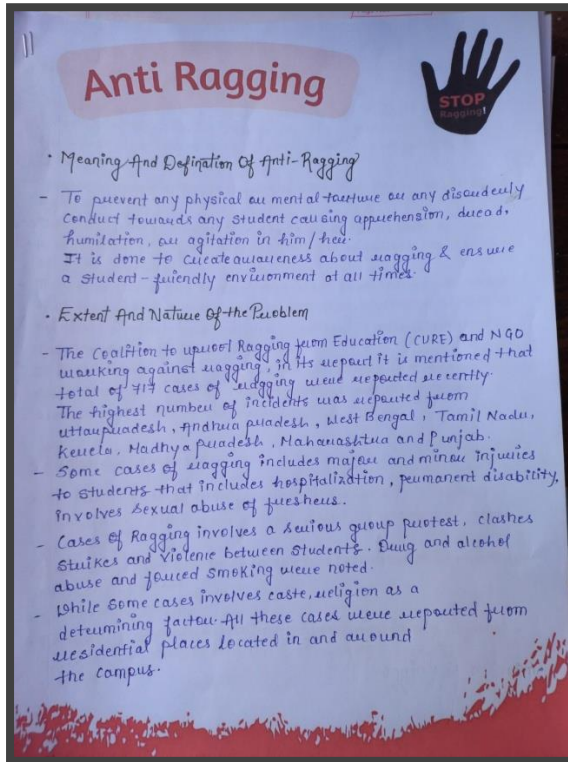 Anti Ragging
STOP
Ragging!
• Meaning And Defination Of Anti-Ragging
- To prevent any physical or mental torture or any disorderly
conduct towards any student causing apprehension, dread,
humilation, or agitation in him/her.
It is done to create awareness about ragging & ensure
a student-friendly environment at all times.
• Extent And Nature Of the Problem
- The Coalition to uproot Ragging from Education (CURE) and NGO
working against ragging, in its report it is mentioned that
total of 717 cases of ragging were reported recently.
The highest number of incidents was reported from
uttarpradesh, Andhra pradesh, West Bengal, Tamil Nadu,
Kerela, Madhya pradesh, Maharashtra and Punjab.
- Some cases of ragging includes major and minor injuries
to students that includes hospitalization, permanent disability,
involves sexual abuse of freshers.
- Cases of Ragging involves a serious group protest, clashes
strikes and violence between students. Drug and alcohol
abuse and forced smoking were noted.
- While some cases involves caste, religion as a
determining factor. All these cases were reported from
residential places located in and around
the campus.